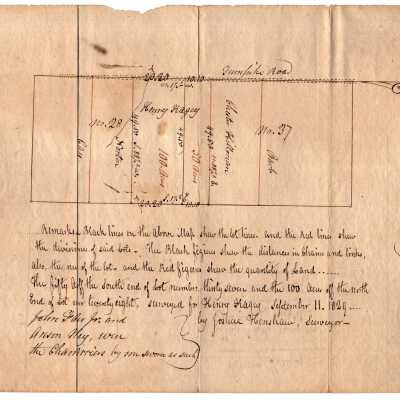 Turnpike Road
20.20 10.10
Henry Hagey
no. 28
100 Acres
50 Acres
no. 37
20.20 10.10
Remarks Black lines on the above Map shew the lot lines and the Red lines shew
the divisions of said lots. The Black figures shew the distances in chains and links,
also the no of the lots and the Red figures shew the quantity of Land
The fifty off the south end of lot number thirty seven and the 100 acres off the north
End of lot no twenty eight, surveyed for Henry Hagey September 11. 1829
by Joshua Henshaw, Surveyor
John Jr. and
Anson were
the Chainmen by me sworn as such